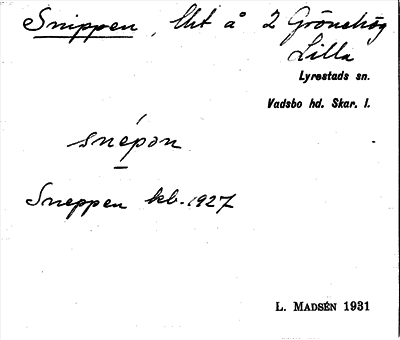 Snippen, lht å 2 Grönehög
Lilla
Lyrestads sn.
Vadsbo hd. Skar. l.
snépon
Sneppen kb. 1927
L. MADSÉN 1931